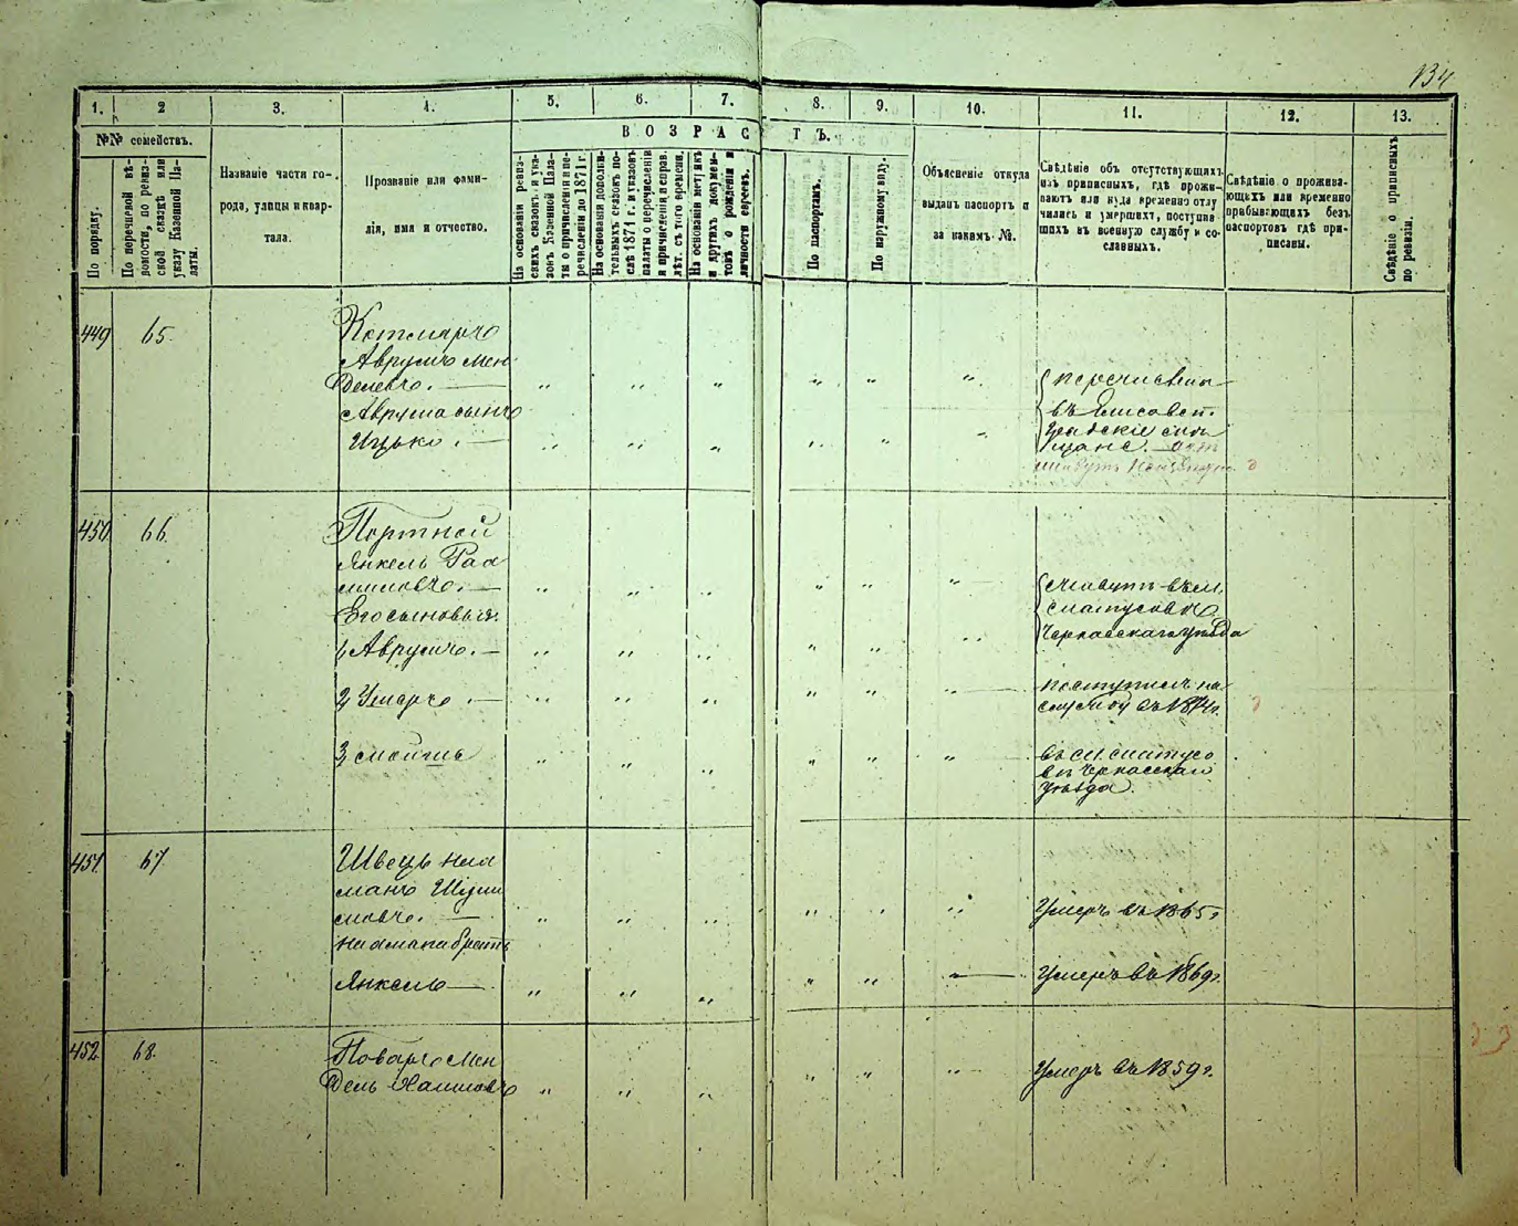 134
1. 2 3. 4. 5. 6. 7. 8. 9. 10. 11. 12. 13.
№№ семействъ.
По порядку.
По перечневой вѣ-
домости, по ревиз-
ской сказкѣ или
указу Казенной Па-
латы.
Названіе части го-
рода, улицы и квар-
тала.
Прозваніе или фами-
лія, имя и отчество.
ВОЗРАСТЪ.
На основаніи ревиз-
скихъ сказокъ и ука-
зовъ Казенной Пала-
ты о причисленіи и пе-
речисленіи до 1871 г.
На основаніи дополни-
тельныхъ сказокъ по-
слѣ 1871 г. и указовъ
палаты о перечисленіи
и причисленія, исправ.
лѣт. съ того времени.
На основаніи метрикъ
и другихъ докумен-
товъ о рожденіи и
личности евреевъ.
По паспортамъ.
По наружному виду.
Объясненіе откуда
выданъ паспортъ и
за какимъ №.
Свѣдѣніе объ отсутствующихъ
изъ приписныхъ, гдѣ прожи-
ваютъ или куда временно отлу
чились и умершихъ, поступив
шихъ въ военную службу и со-
сланныхъ.
Свѣдѣніе о прожива-
ющихъ или временно
прибывающихъ безъ
паспортовъ гдѣ при-
писаны.
Свѣдѣніе о приписныхъ
по ревизіи.
449 65.
Котляръ
Аврумъ Мен
делевъ.
Аврума сынъ
Ицько.
перечислены
въ Елисавет.
градскіе мѣ
щане.
450 66.
Портной
Янкель
Его сыновья:
1, Аврумъ.
2, Умаръ.
3, Мойшь
живутъ въ м.
Черкасскаго уѣзда
поступилъ на
службу въ 1874 г.
въ м.
въ Черкасскаго
уѣзда.
451. 67
Швецъ На
манъ
братъ
Янкель
Умеръ въ 1865 г
Умеръ въ 1869 г.
452. 68.
Поваръ Мен
дель Хаимовъ
Умеръ въ 1859 г.